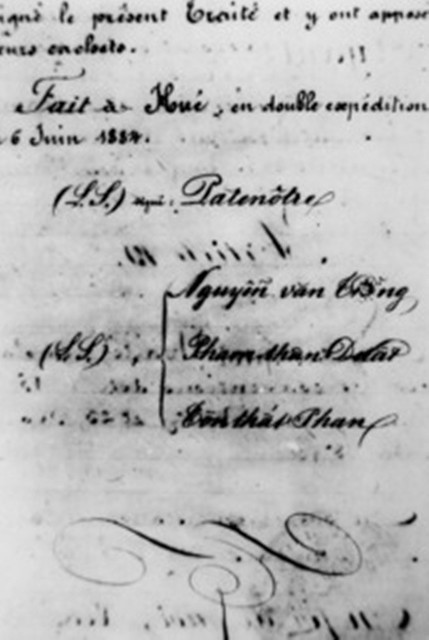 igné le présent Traité et y ont apposé
eurs cachets.
Fait à Hué, en double expédition
6 Juin 1884.
(L.S.) signé: Patenôtre
Nguyên van Tuong
(L.S.)
Pham than Duat
Tôn thât Phan